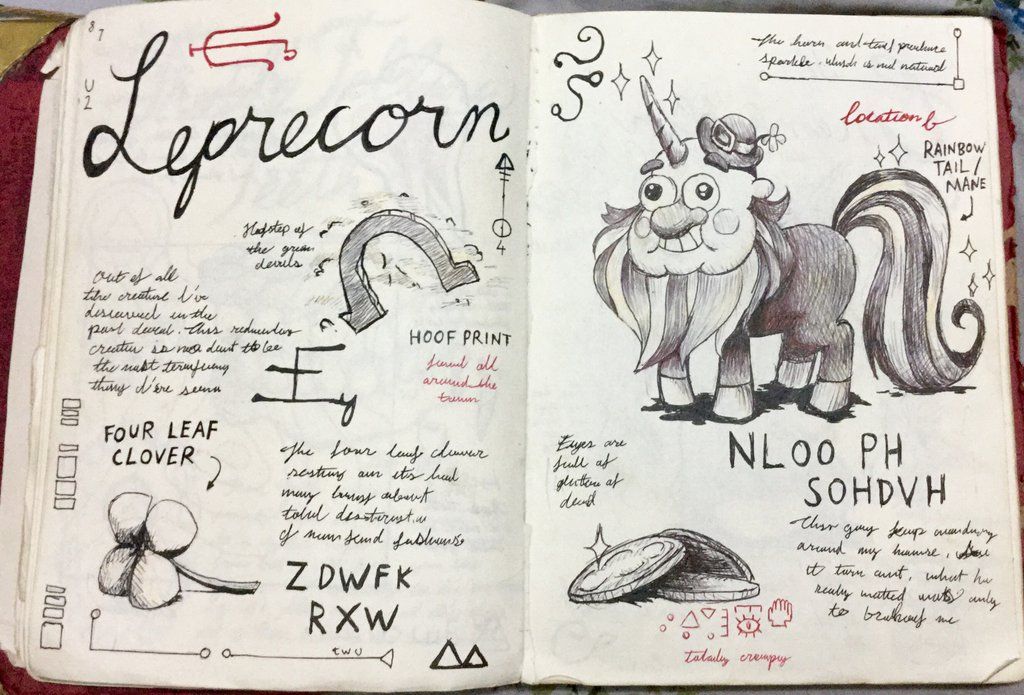 87
U
2
Leprecorn
Hofstep of
the green
devils
4
Out of all
the creature I've
discovered in the
past
creature is no dout to be
the most terrifying
thing I've seen
HOOF PRINT
found all
around the
town
FOUR LEAF
CLOVER
The four leaf clover
resting on it's head
may bring about
total
of
ZDWFK
RXW
two
The horn and tail produce
sparkle. which is not natural
location
RAINBOW
TAIL /
MANE
Eyes are
full of
of
dead
NLOO PH
SOHDVH
This guy keep wandering
around my house,
it turn out, what he
really only
to me
totally creepy